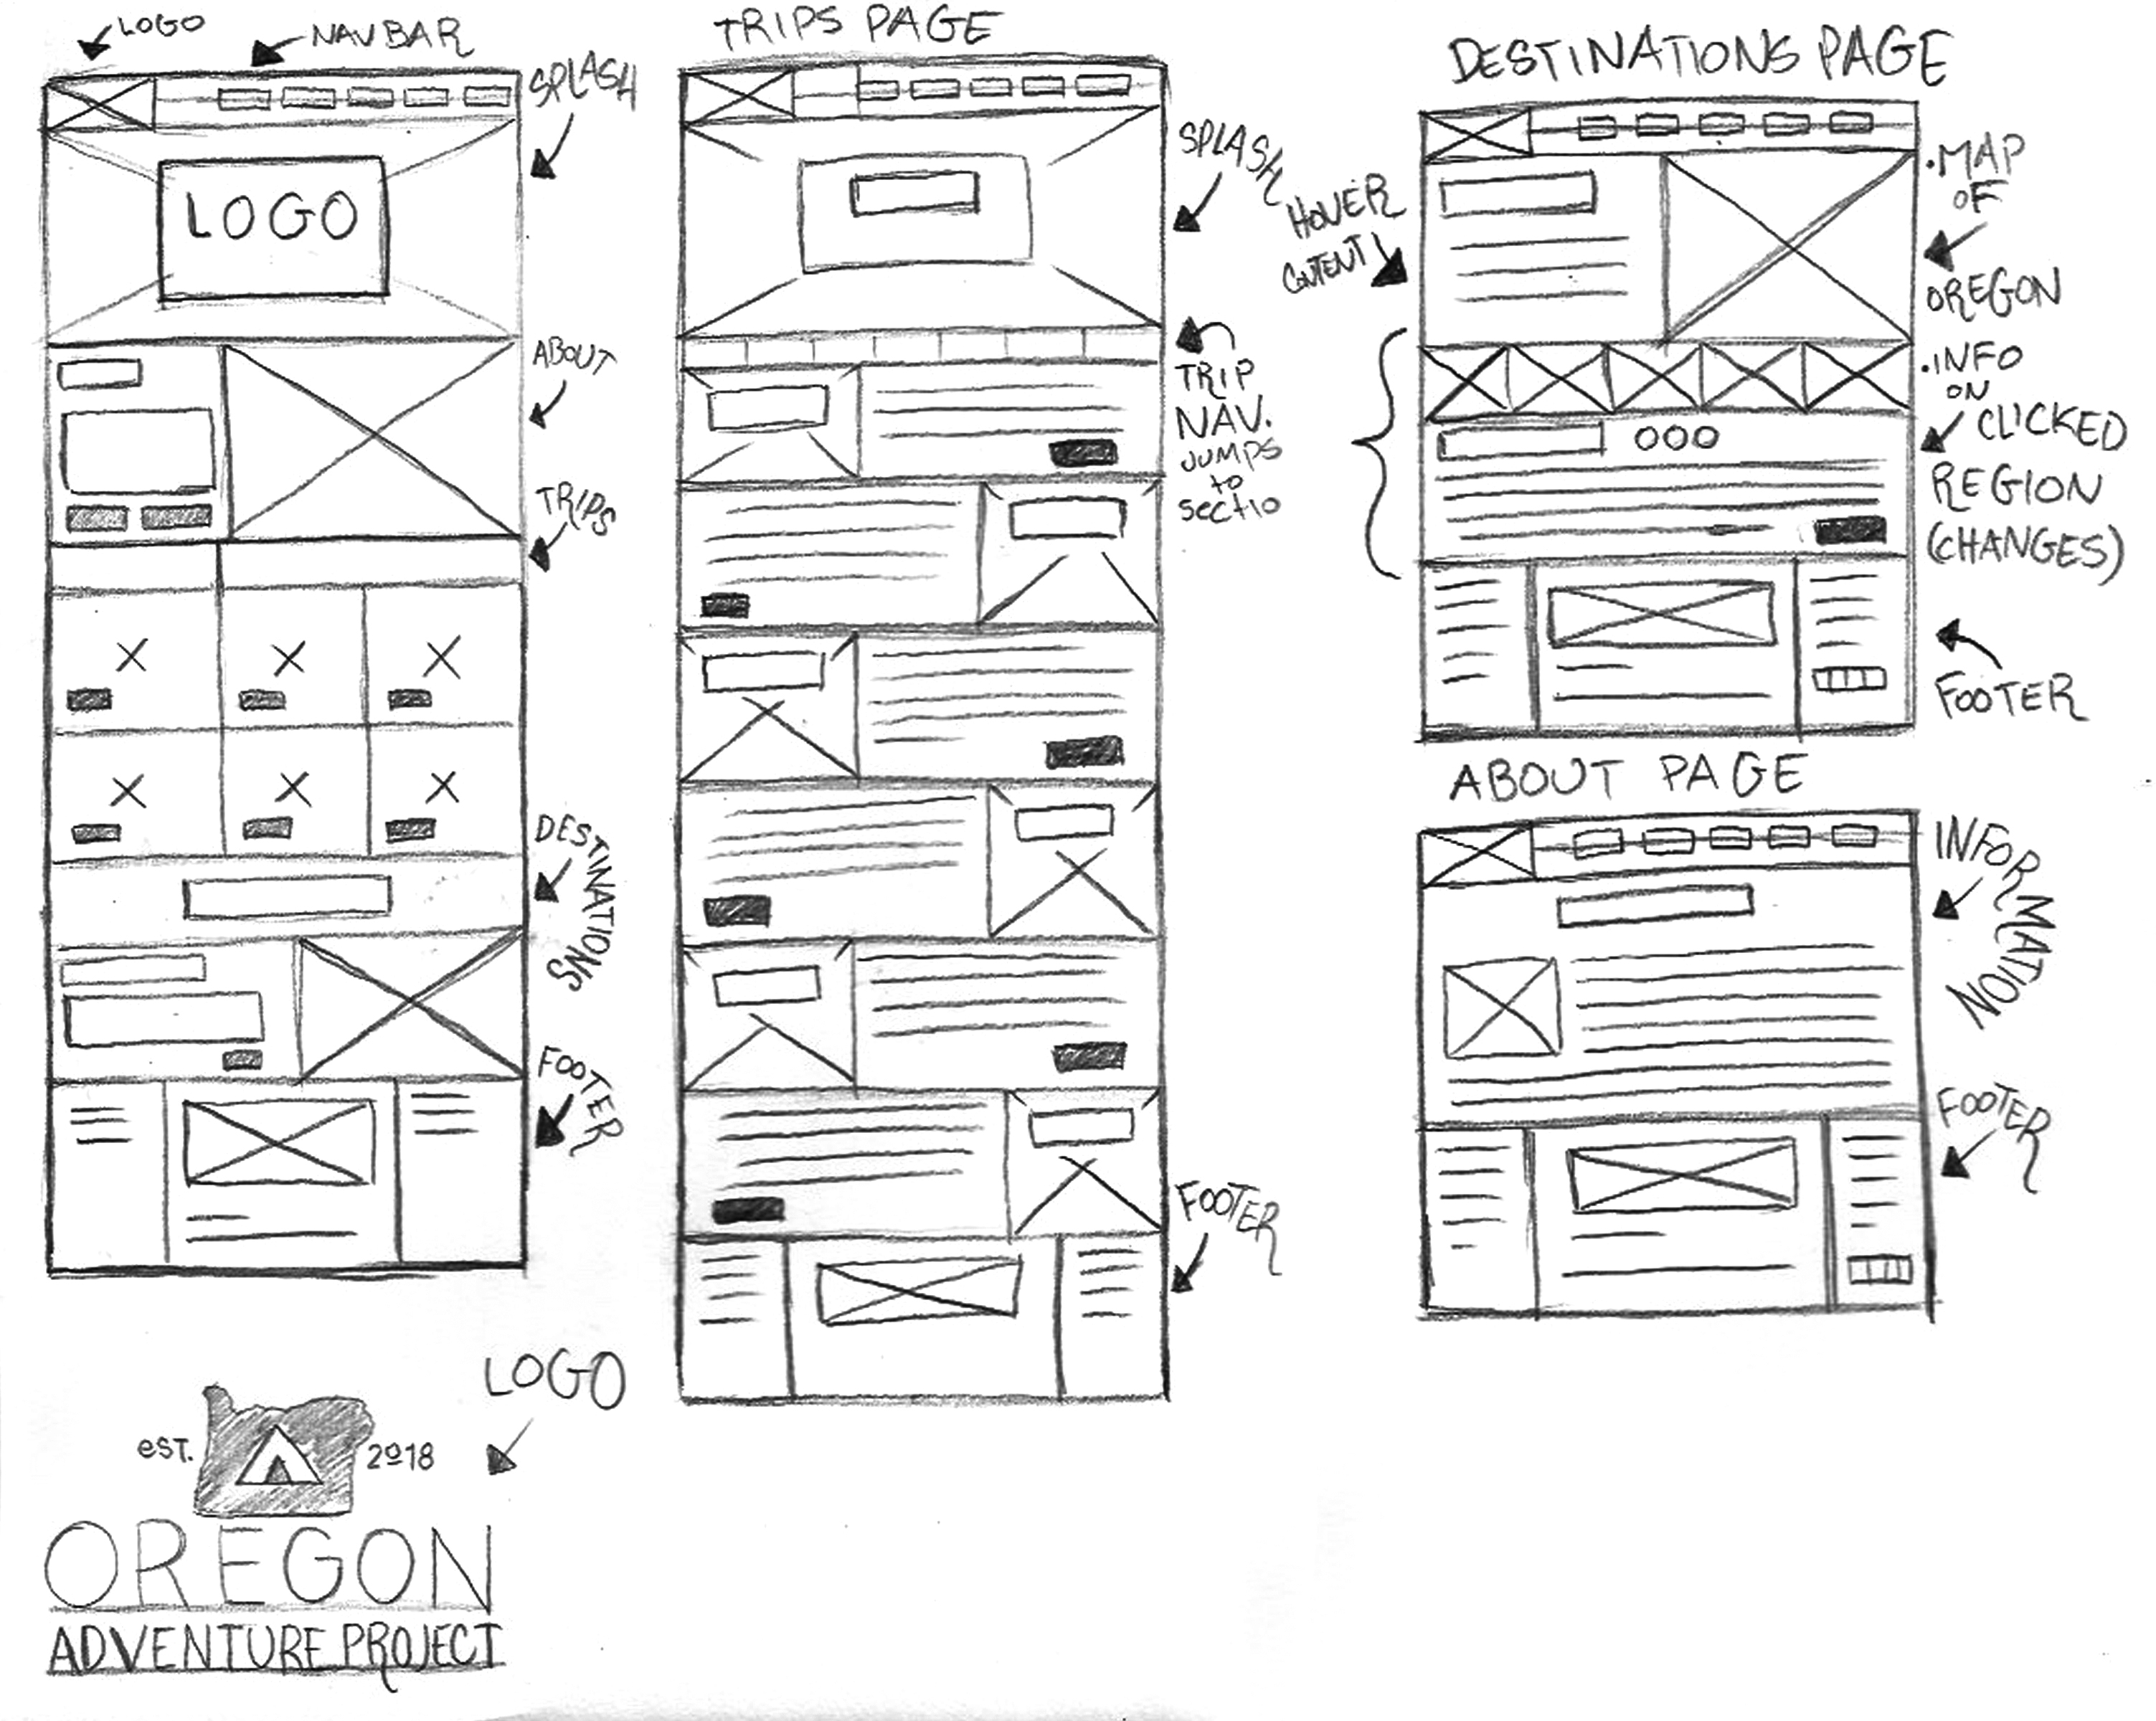 LOGO
NAV BAR
SPLASH
LOGO
ABOUT
TRIPS
DESTINATIONS
FOOTER
LOGO
EST. 2018
OREGON
ADVENTURE PROJECT
TRIPS PAGE
SPLASH
TRIP
NAV.
JUMPS
to
sectio
FOOTER
DESTINATIONS PAGE
HOVER
CONTENT
.MAP
OF
OREGON
.INFO
ON
CLICKED
REGION
(CHANGES)
FOOTER
ABOUT PAGE
INFORMATION
FOOTER